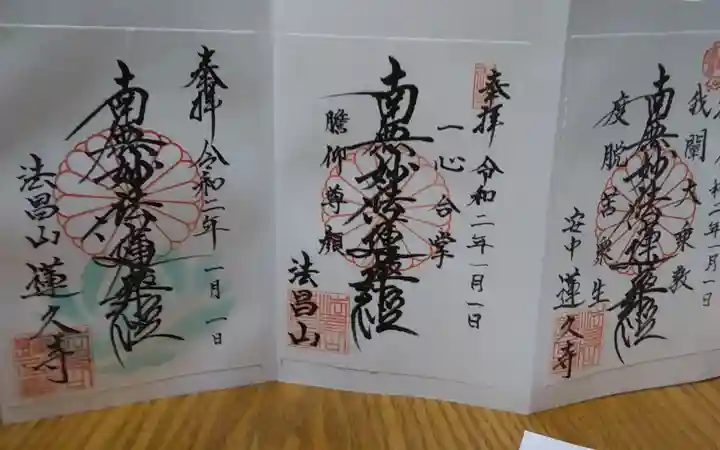 奉拝
令和二年
一月一日
南無妙法蓮華経
法昌山
蓮久寺
奉拝
令和二年一月一日
一心合掌
南無妙法蓮華経
瞻仰尊顔
法昌山
二年一月一日
我闡大乗教
南無妙法蓮華経
度脱苦衆生
安中
蓮久寺